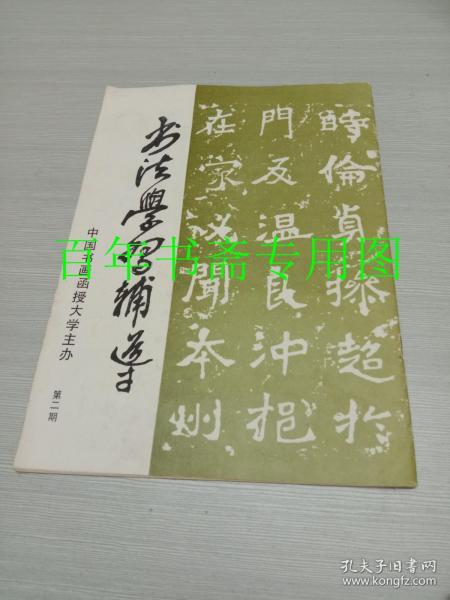 书法學習辅导
中国书画函授大学主办
第二期
時倫貞操超於
門及温良沖挹
在家必聞本州
百年书斋专用图
孔夫子旧书网
www.kongfz.com